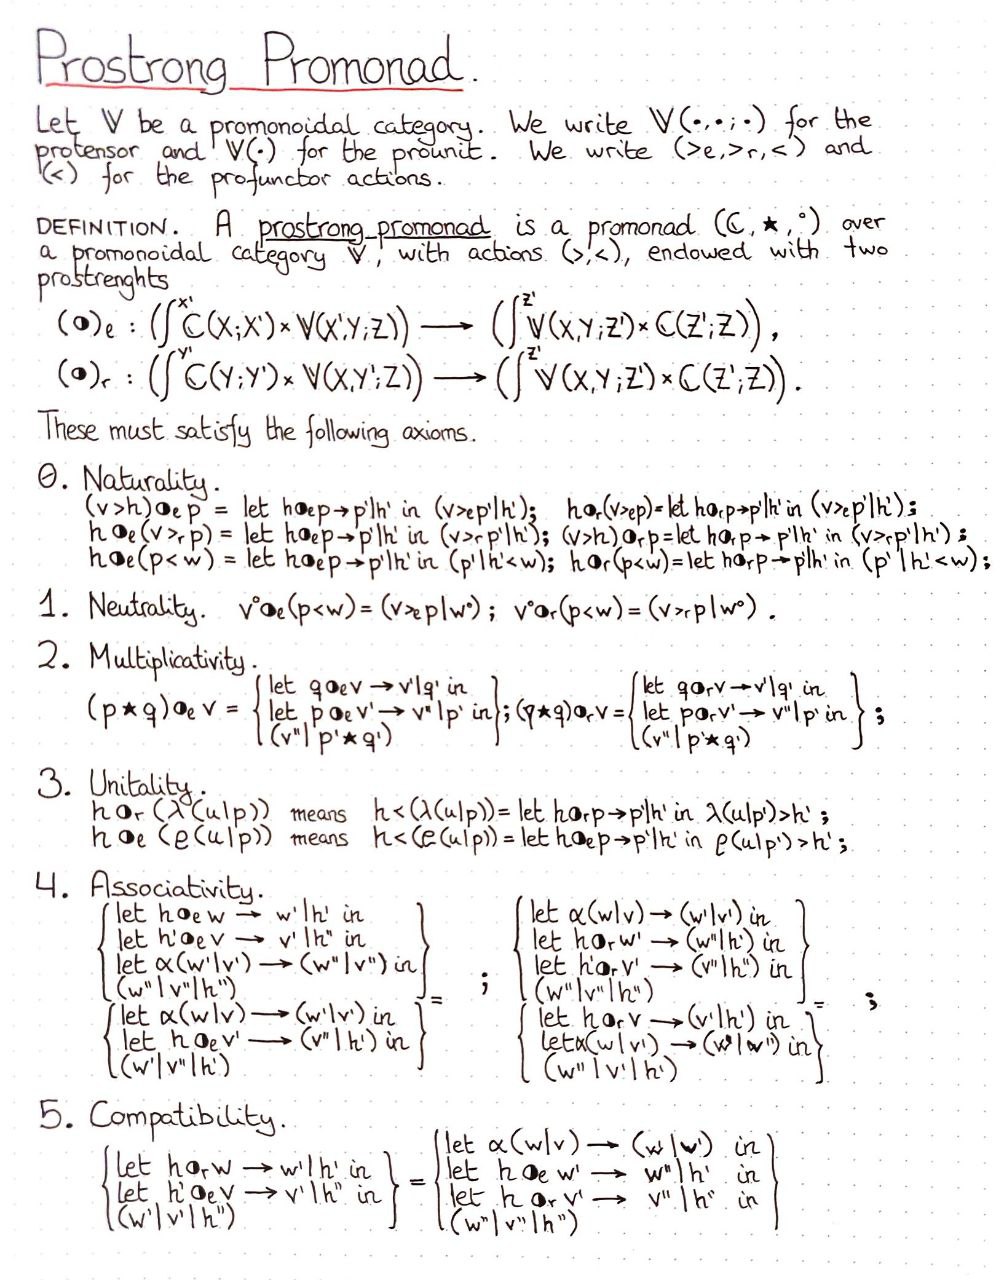 Prostrong Promonad.
Let 𝕍 be a promonoidal category. We write 𝕍(•,•;•) for the
protensor and 𝕍(•) for the prounit. We write (>e,>r,<) and
(<) for the profunctor actions.
DEFINITION. A prostrong promonad is a promonad (ℂ,★,°) over
a promonoidal category 𝕍, with actions (>,<), endowed with two
prostrenghts
(◑)e : (∫^X' ℂ(X;X')×𝕍(X',Y;Z)) ⟶ (∫^Z' 𝕍(X,Y;Z')×ℂ(Z';Z)),
(◑)r : (∫^Y' ℂ(Y;Y')×𝕍(X,Y';Z)) ⟶ (∫^Z' 𝕍(X,Y;Z')×ℂ(Z';Z)).
These must satisfy the following axioms.
0. Naturality.
(v>h)◑e p = let h◑ep→p'|h' in (v>ep'|h'); h◑r(v>ep)=let h◑rp→p'|h' in (v>ep'|h');
h◑e(v>r p) = let h◑ep→p'|h' in (v>r p'|h'); (v>h)◑rp=let h◑rp→p'|h' in (v>rp'|h');
h◑e(p<w) = let h◑ep→p'|h' in (p'|h'<w); h◑r(p<w)=let h◑rp→p'|h' in (p'|h'<w);
1. Neutrality. v°◑e(p<w)=(v>ep|w°); v°◑r(p<w)=(v>rp|w°).
2. Multiplicativity.
(p★q)◑e v = {let q◑ev→v'|q' in
let p◑ev'→v''|p' in
(v''|p'★q')}; (p★q)◑rv={let q◑rv→v'|q' in
let p◑rv'→v''|p' in
(v''|p'★q')};
3. Unitality.
h◑r(λ(u|p)) means h<(λ(u|p))=let h◑rp→p'|h' in λ(u|p')>h';
h◑e(ρ(u|p)) means h<(ρ(u|p))=let h◑ep→p'|h' in ρ(u|p')>h';
4. Associativity.
{let h◑ew → w'|h' in
let h'◑ev → v'|h'' in
let α(w'|v') ⟶ (w''|v'') in
(w''|v''|h'')} =
{let α(w|v) ⟶ (w'|v') in
let h◑ev' ⟶ (v''|h') in
(w'|v''|h')} ;
{let α(w|v) → (w'|v') in
let h◑rw' → (w''|h') in
let h'◑rv' → (v''|h'') in
(w''|v''|h'')} =
{let h◑rv → (v'|h') in
let α(w|v') → (w'|w'') in
(w''|v'|h')} ;
5. Compatibility.
{let h◑rw → w'|h' in
let h'◑ev → v'|h'' in
(w'|v'|h'')} = {let α(w|v) → (w|w') in
let h◑e w' → w''|h' in
let h◑r v' → v''|h'' in
(w''|v''|h'')}